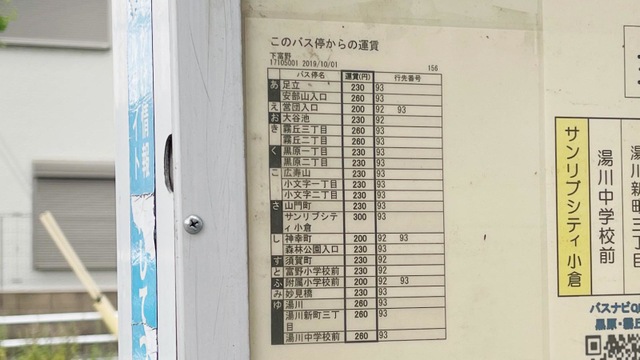 このバス停からの運賃
下富野
17105001 2019/10/01 156
バス停名 運賃(円) 行先番号
あ 足立 230 93
安部山入口 260 93
え 営団入口 200 92 93
お 大谷池 230 92
き 霧丘三丁目 260 93
霧丘二丁目 260 93
く 黒原一丁目 230 93
黒原二丁目 230 93
こ 広寿山 230 93
小文字一丁目 230 93
小文字二丁目 230 93
さ 山門町 230 93
サンリブシティ小倉 300 93
し 神幸町 200 92 93
森林公園入口 230 93
す 須賀町 230 92
と 富野小学校前 230 92
ふ 附属小学校前 200 92 93
み 妙見橋 210 93
ゆ 湯川 260 93
湯川新町三丁目 260 93
湯川中学校前 260 93
サンリブシティ小倉
湯川中学校前
湯川新町三丁目
バスナビQ
黒原・霧丘
情報
イト
して